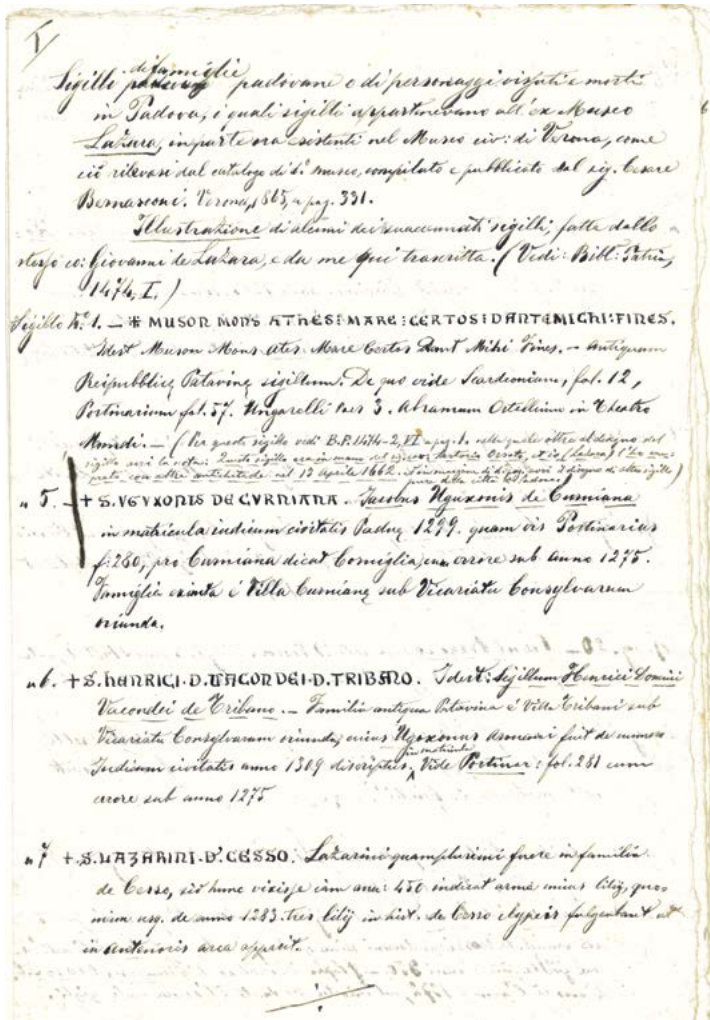 I/
Sigilli di famiglie padovane e di personaggi vissuti e morti
in Padova, i quali sigilli appartenevano all'ex Museo
Lazara, in parte ora esistenti nel Museo civ: di Verona, come
ciò rilevasi dal catalogo di d.º museo, compilato e pubblicato dal sig. Cesare
Bernasconi. Verona, 1865, a pag. 331.
Illustrazione di alcuni dei suaccennati sigilli, fatta dallo
stesso co: Giovanni de Lazara, e da me qui trascritta. (Vedi: Bibl: Patria,
1474, I.)
Sigillo Nº 1. — + MUSON MONS ATHES: MARE: CERTOS: DANT: MICHI: FINES.
Idest Muson Mons Ates Mare Certos Dant Mihi Fines. — Antiquum
Reipubblicę Patavinę sigillum. De quo vide Scardeonium, fol. 12,
Portinarium fol. 57. Ungarelli Pars 3. Abramum Ortellium in Theatro
Mundi. — (Per questo sigillo vedi B.P. 1474-2, VI a pag. 1. nella quale oltre al disegno del
sigillo vi è la nota: Questo sigillo era in mano del signor Sertorio Orsato, et io (Lazara) l'ho
con altre antichità de: nel 13 Aprile 1662.
" 5. — + S. VGVXONIS DE CVRNIANA. Jacobus Uguxonis de Curniana
in matricula iudicum civitatis Paduę 1299. quam vis Portinarius
f: 280, pro Curniana dicat Corniglia, cum errore sub anno 1275.
Famiglia exinta è Villa Curnianę sub Vicariatu Consylvarum
oriunda.
" 6. + S. HENRICI. D. VACONDEI. D. TRIBANO. Idest: Sigillum Henrici Domini
Vacondei de Tribano. — Familia antiqua Patavina è Villa Tribani sub
Vicariatu Consylvarum oriunda, cuius Uguxonus fuit de numero
Judicum civitatis anno 1309 discriptus in matricula. Vide Portinar: fol. 281 cum
errore sub anno 1275
" 7 + S. LAZARINI. D'. CESSO. Lazarini quamplurimi fuere in familia
de Cesso, sed hunc vixisse indicat arma unius lilij, quo=
niam usq. de anno 1283. tres lilij in de Cesso clypeis fulgebant ut
in Antenoris arca apparet.